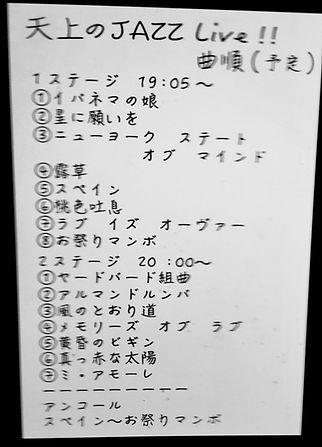 天上のJAZZ Live!!
曲順(予定)
1ステージ 19:05~
①イパネマの娘
②星に願いを
③ニューヨーク ステート
オブ マインド
④露草
⑤スペイン
⑥桃色吐息
⑦ラブ イズ オーヴァー
⑧お祭りマンボ
2ステージ 20:00~
①ヤードバード組曲
②アルマンドルンバ
③風のとおり道
④メモリーズ オブ ラブ
⑤黄昏のビギン
⑥真っ赤な太陽
⑦ミ・アモーレ
ーーーーーーーーー
アンコール
スペイン~お祭りマンボ